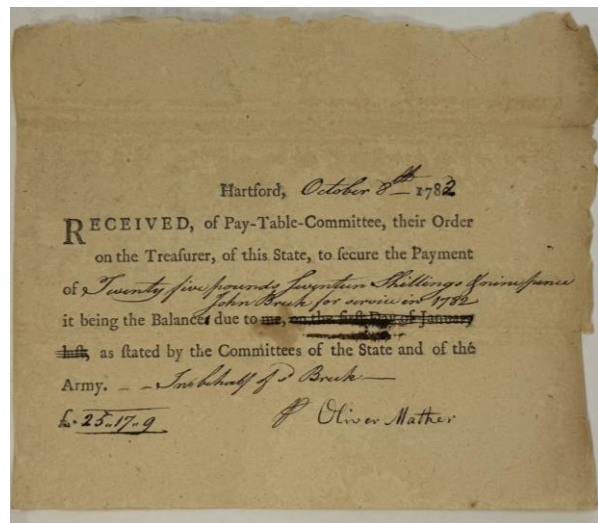 Hartford, October 8th 1782
RECEIVED, of Pay-Table-Committee, their Order
on the Treasurer, of this State, to secure the Payment
of Twenty five pounds Sevynteen Shillings & nine pence
John Breck for service in 1782
it being the Balance due to me, on the first Day of January
last, as stated by the Committees of the State and of the
Army. — — In behalf of sd Breck —
£25..17..9 Oliver Mather